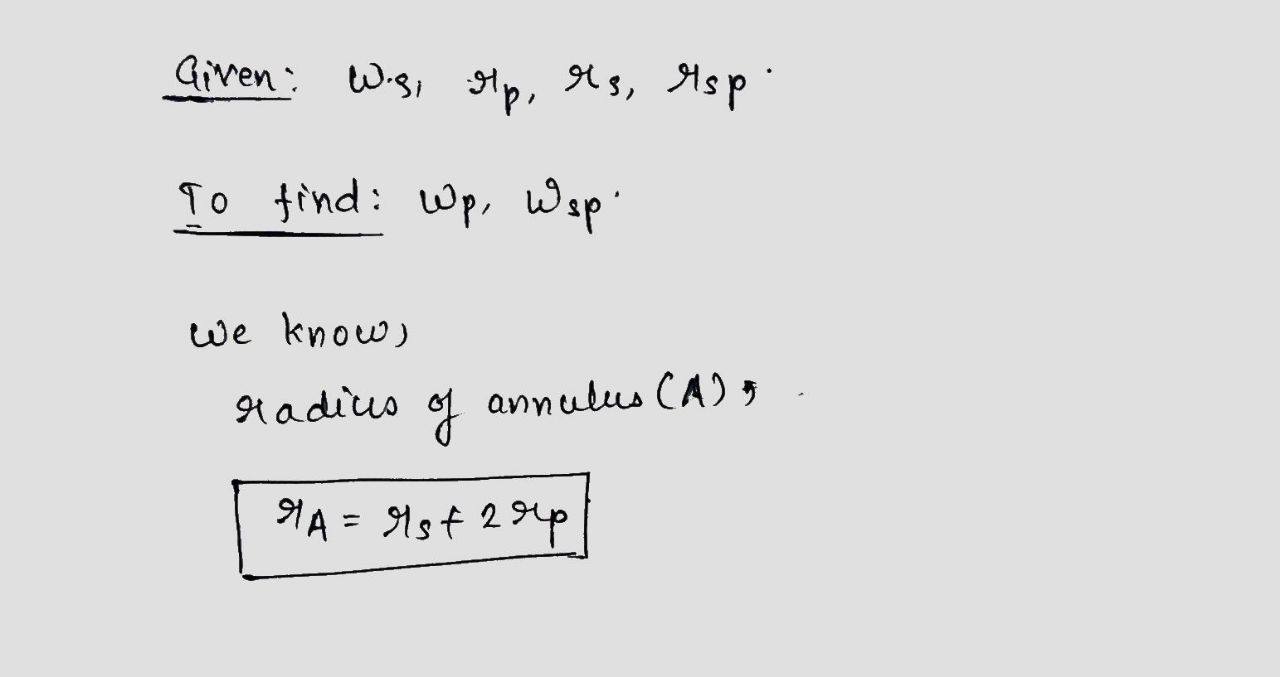 Given: ws, rp, rs, rsp.
To find: wp, wsp.
we know,
radius of annulus (A),
rA = rs + 2rp